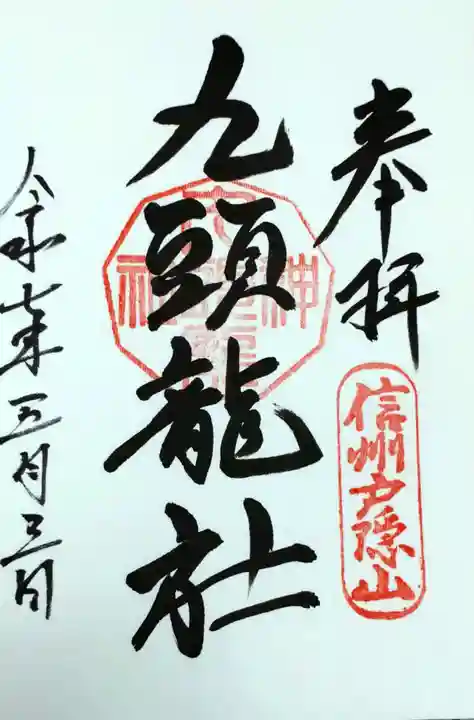 奉拝
信州戸隠山
九頭龍社
令和七年五月三日